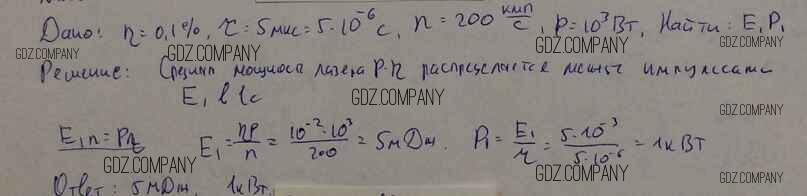 Дано: η = 0,1%, τ = 5мкс = 5·10⁻⁶ с, n = 200 имп/с, P = 10³ Вт, Найти: E₁ P₁
GDZ.COMPANY GDZ.COMPANY GDZ.COMPANY GDZ.COMPANY
Решение: Средняя мощность лазера P·η распределяется между импульсами
E₁ в 1с
GDZ.COMPANY GDZ.COMPANY
E₁n = Pη E₁ = ηP/n = 10⁻²·10³/200 = 5мДж. P₁ = E₁/τ = 5·10⁻³/5·10⁻⁶ = 1кВт
GDZ.COMPANY GDZ.COMPANY GDZ.COMPANY GDZ.COMPANY
Ответ: 5мДж, 1кВт.